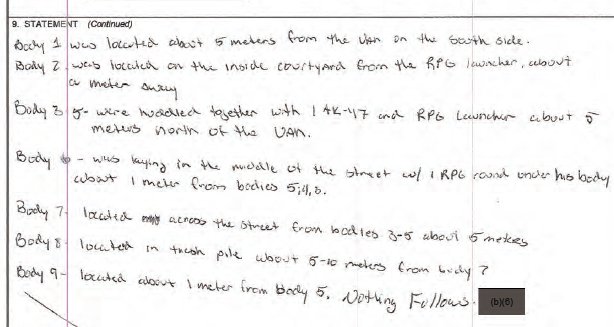 9. STATEMENT (Continued)
Body 1 was located about 5 meters from the van on the south side.
Body 2 was located on the inside courtyard from the RPG launcher, about
a meter away
Body 3-5- were huddled together with 1 AK-47 and RPG Launcher about 5
meters north of the VAN.
Body 6 - was laying in the middle of the street w/ 1 RPG round under his body
about 1 meter from bodies 5,4,3.
Body 7- located across the street from bodies 3-5 about 5 meters
Body 8- located in trash pile about 5-10 meters from body 7
Body 9- located about 1 meter from body 5. Nothing Follows.
(b)(6)